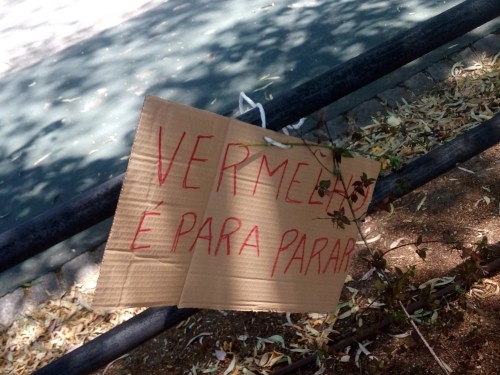 VERMELHO
É PARA PARAR